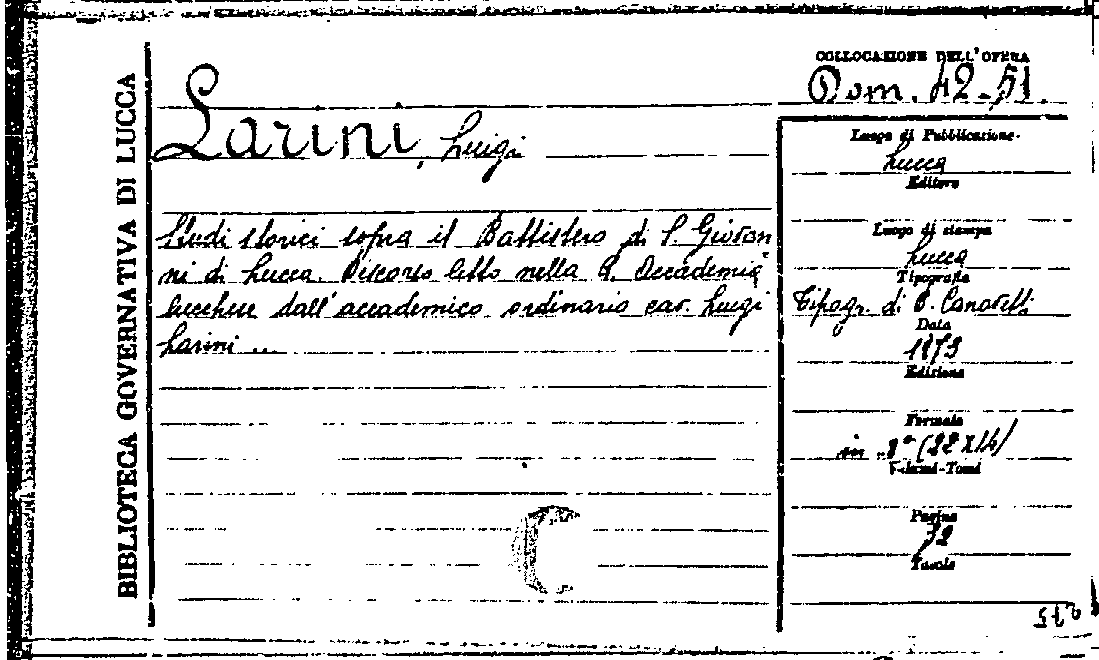 BIBLIOTECA GOVERNATIVA DI LUCCA
COLLOCAZIONE DELL'OPERA
Dom. 42-51.
Larini, Luigi
Studi storici sopra il Battistero di S. Giovan
ni di Lucca. Discorso letto nella R. Accademia
lucchese dall'accademico ordinario cav. Luigi
Larini ...
Luogo di Pubblicazione
Lucca
Editore
Luogo di stampa
Lucca
Tipografia
Tipogr. di B. Canovetti
Data
1873
Edizione
Formato
in 8° (22x14)
Volumi-Tomi
Pagine
72
Tavole